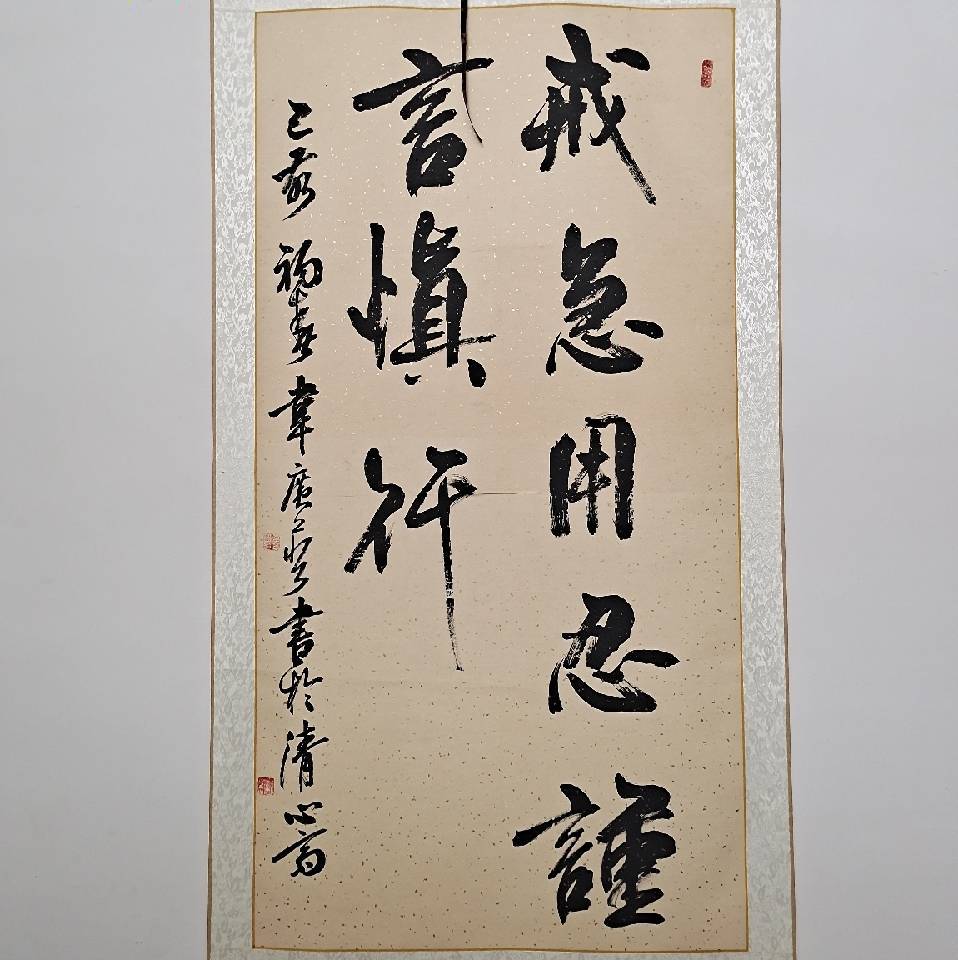 戒急用忍謹
言慎行
己亥初春韋廣書於清心齋